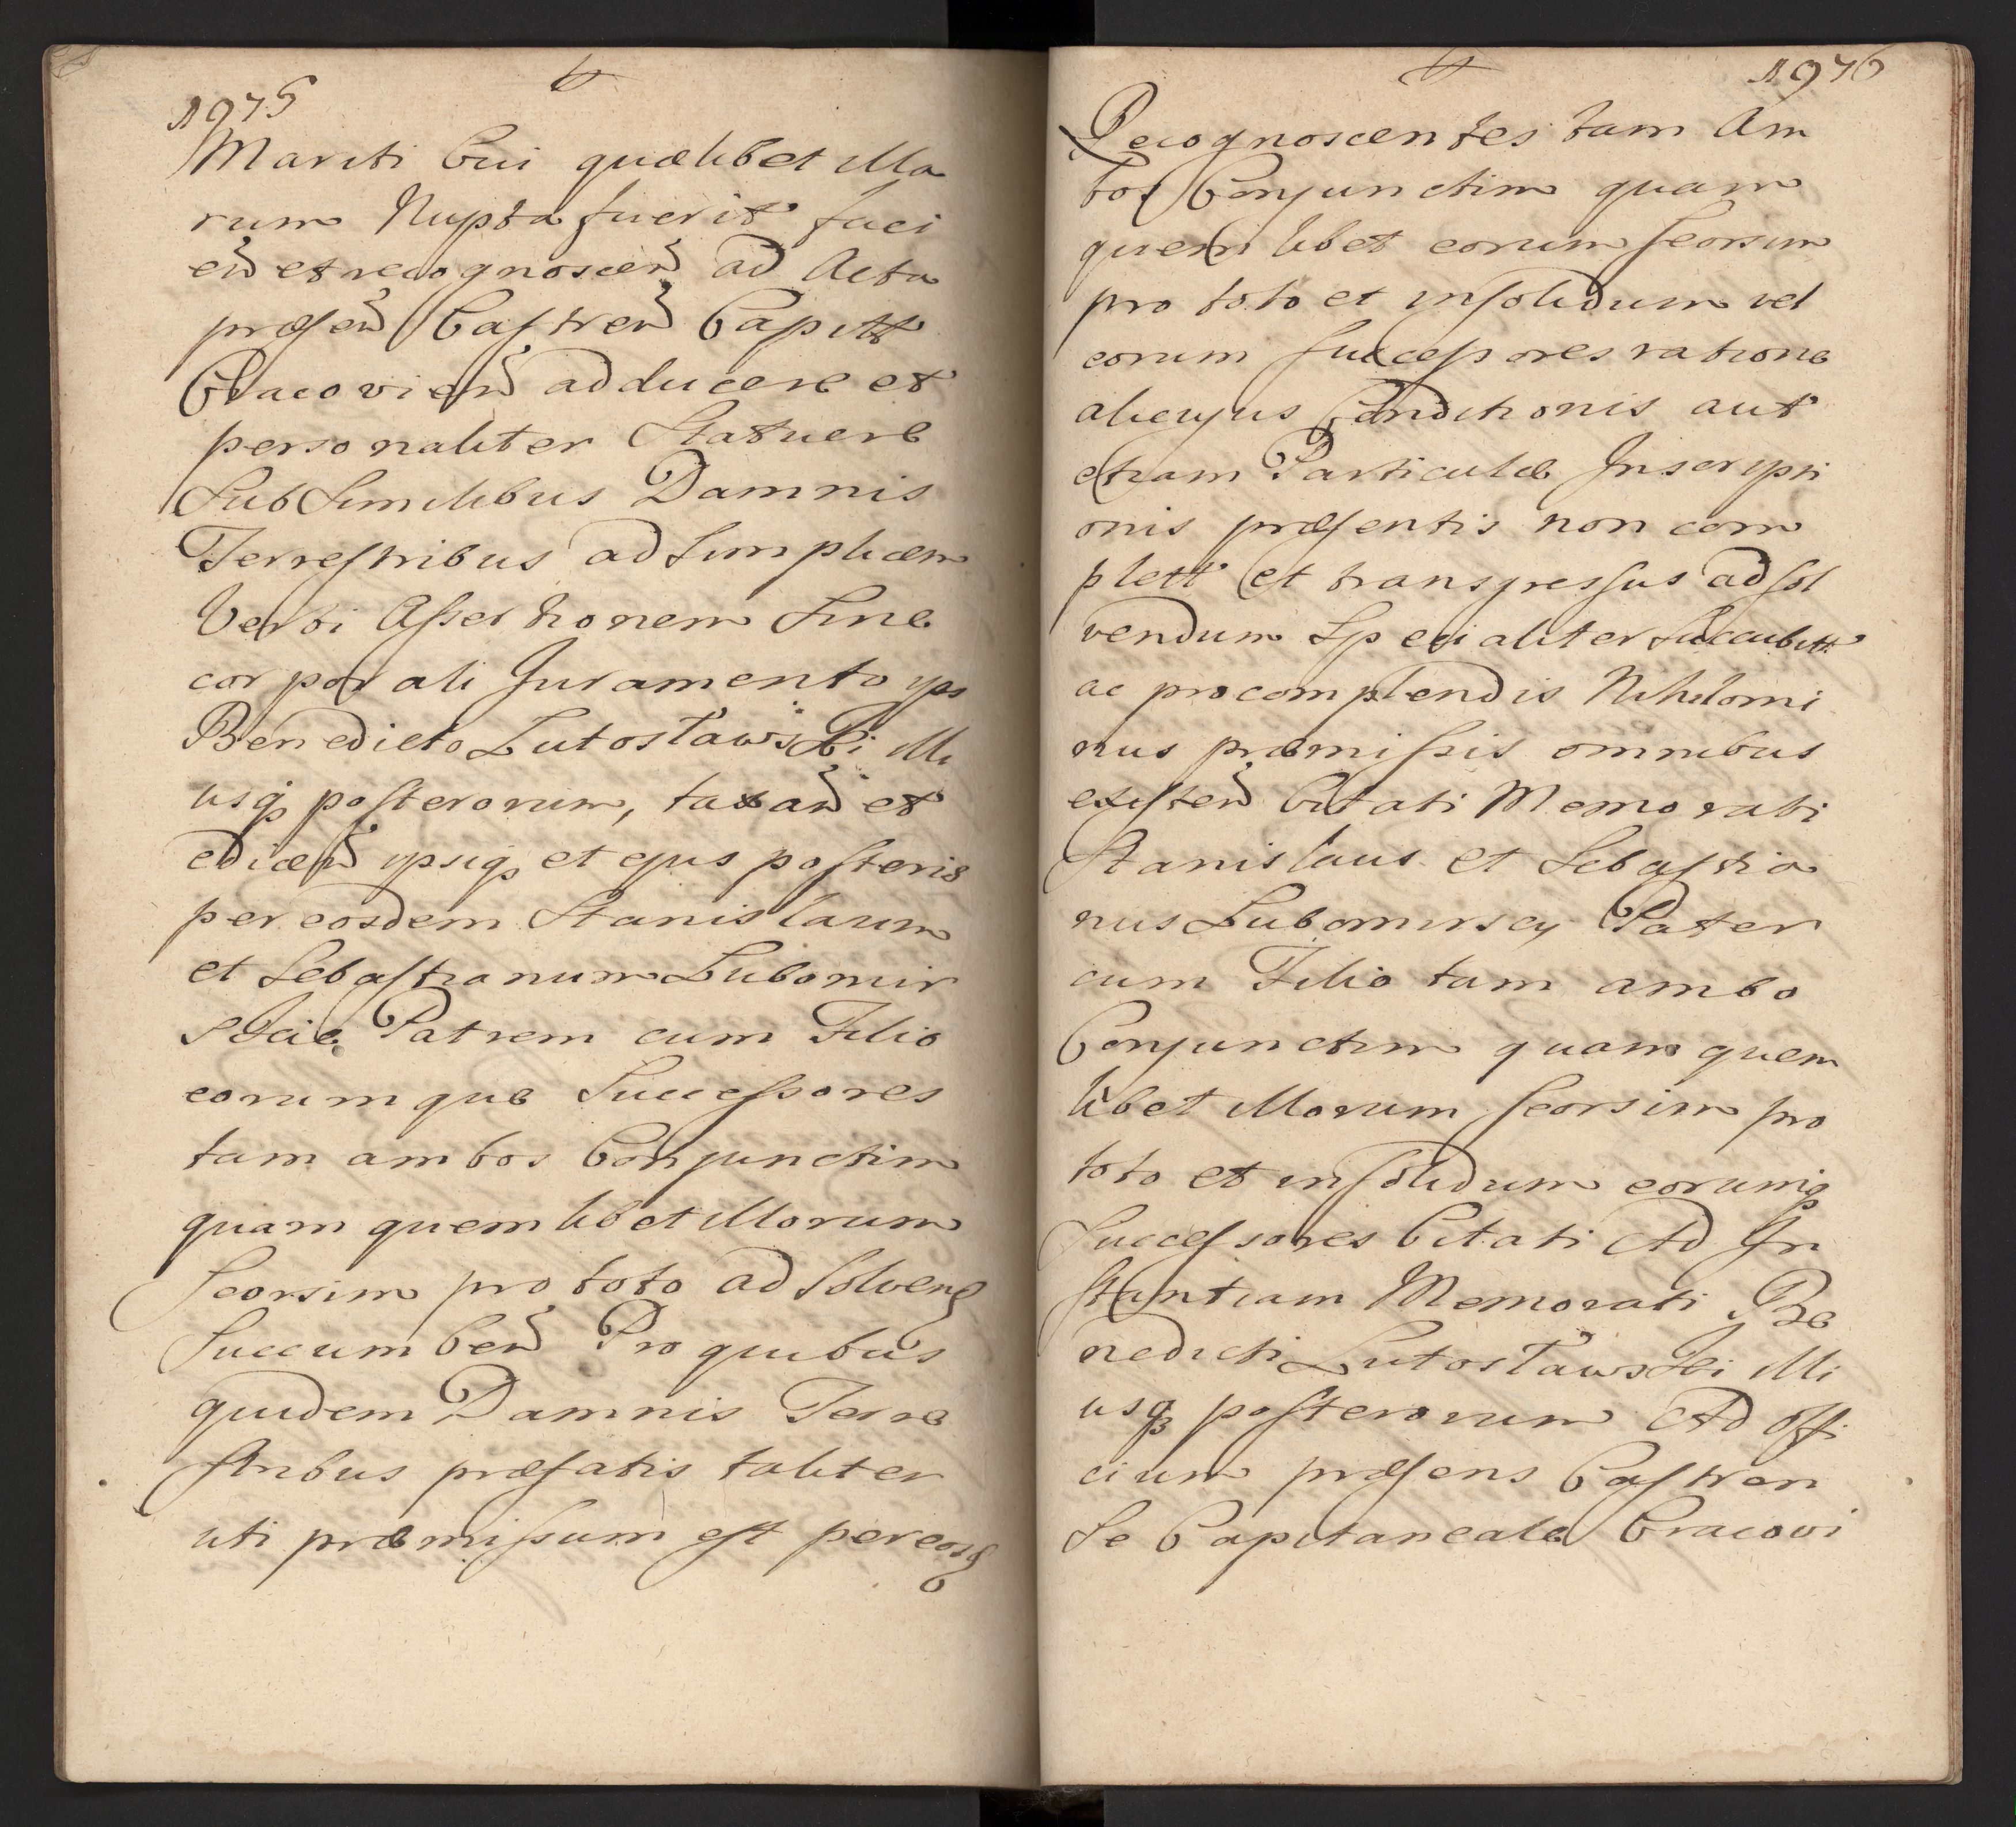 1975
Mariti Cui quælibet illa
rum Nupta fuerit faci
eñ et recognosceñ ad Acta
præseñ Castreñ Capitt
Cracovieñ adducere et
personaliter Statuere
Sub Similibus Damnis
Terrestribus ad Simplicem
Verbi Assertionem Sine
corporali Juramento ips
Benedicto Lutosławski illi
usq posterorum, taxañ et
ediceñ ipsiq et ejus posteris
per eosdem Stanislaum
et Sebastianum Lubomir
skie Patrem cum Filio
eorumque Successores
tam ambos Conjunctim
quam quemlibet illorum
Seorsim pro toto ad Solvend
Succumbeñ Pro quibus
quidem Damnis Terre
stribus præfatis taliter
uti præmissum est per eosd
1976
Recognoscentes tam Am
bos Conjunctim quam
quemlibet eorum seorsim
pro toto et insolidum vel
eorum Successores ratione
alicujus Conditionis aut
etiam Particulæ Inscripti
onis præsentis non com
plett et transgressus ad sol
vendum Specialiter Succubitt
ac pro complendis Nihilomi
nus præmissis omnibus
existeñ Citati Memorati
Stanislaus et Sebastia
nus Lubomirscy Pater
cum Filio tam ambo
Conjunctim quam quem
libet illorum seorsim pro
toto et insolidum eorumq
Successores Citati Ad In
stantiam Memorati Be
nedicti Lutosławski illi
usq posterorum Ad offi
cium præsens Castren
se Capitaneale Cracovi